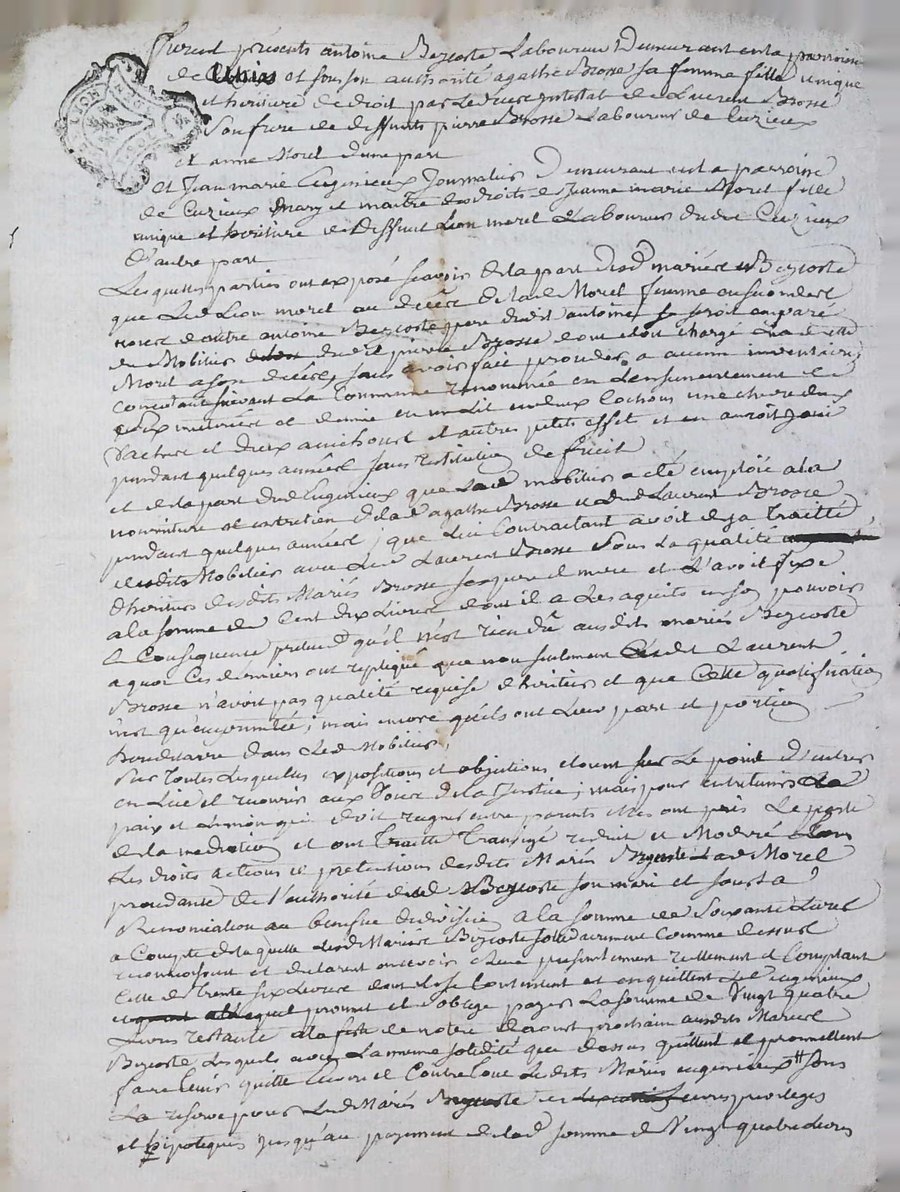 furent présents antoine Bezcoste Laboureur Demeurant en la parroisse
de Unias et sous son authorité agathe Brosse sa femme fille unique
et heritiere de droit par Le decès intestat de Laurent Brosse
son frere de deffunts pierre Brosse Laboureur de Cuzieux
et anne Morel d'une part
et Jean marie Eugenieux Journalier Demeurant en la parroisse
de Cuzieux Mary et maitre des droits de Jeanne marie Morel fille
unique et heritiere de deffunt Lion morel Laboureur dudit Cuzieux
d'autre part
Lesquelles parties ont exposé scavoir de la part desd mariés Bezcoste
que Led Lion morel au decès de lad Morel femme en secondes
noces d'autre antoine Bezcoste pere dudit antoine se seroit emparé
du Mobilier dudit pierre Brosse dont étoit chargé Lad
Morel a son decès, sans avoir fait proceder a aucun inventaire,
suivant La Commune renommée en
et demie un Lit deux Cochons une chevre deux
vaches et autres petits effets et en auroit joui
pendant quelques années sans restitution
et de la part dud Eugenieux que Led mobilier a été emploié a la
nourriture et entretien de lad agathe Brosse et dud Laurent Brosse
pendant quelques années, que Lui Contractant avoit deja Traitté
desdits Mobiliers avec Led Laurent Brosse sous La qualité
d'heritier desdits Mariés Brosse ses pere et mere et L'avoit fixé
a la somme de Cent dix Livres dont il a Les aquits en son pouvoir
Consequence pretend qu'il n'est rien dû ausdits mariés Bezcoste
a quoi Ces derniers ont repliqué que non seulement Ledit Laurent
Brosse n'avoit pas qualité requise d'heritier et que Cette qualification
n'est qu'empruntée; mais encore qu'ils ont Leur part et portion
hereditaire dans Led Mobilier,
Sur Toutes Lesquelles expositions et objections etoient sur Le point d'entrer
en Lice et recourir aux Voies de la Justice; mais pour entretenir La
paix et L'union qui doit regner entre parents Elles ont pris Le parti
de la mediation et ont Traitté Transigé reduit et Moderé
Les droits actions et pretentions desdits Mariés Bezcoste Lad Morel
procedante de l'authorité dud Bezcoste son mari et sous La
Renonciation au benefice de division a la somme de Soixante Livres
a Compte de laquelle Lesd Mariés Bezcoste solidairement Comme dessus
reconnoissent et declarent avoir reçu presentement reellement et Comptant
Celle de Trente six Livres dont ils se Contentent et en quittent Led Eugenieux
Lequel promet et s'oblige payer La somme de Vingt quatre
Livres restante a la fête de notre Dame d'aoust prochain ausdits Mariés
Bezcoste Lesquels avec La meme solidité que dessus quittent et promettent
faire tenir quitte Envers et Contre tous Lesdits Mariés eugenieux sous
La reserve pour Lesd Mariés Bezcoste de Leurs privileges
et hipoteques jusqu'au payement de lad somme de Vingt quatre Livres